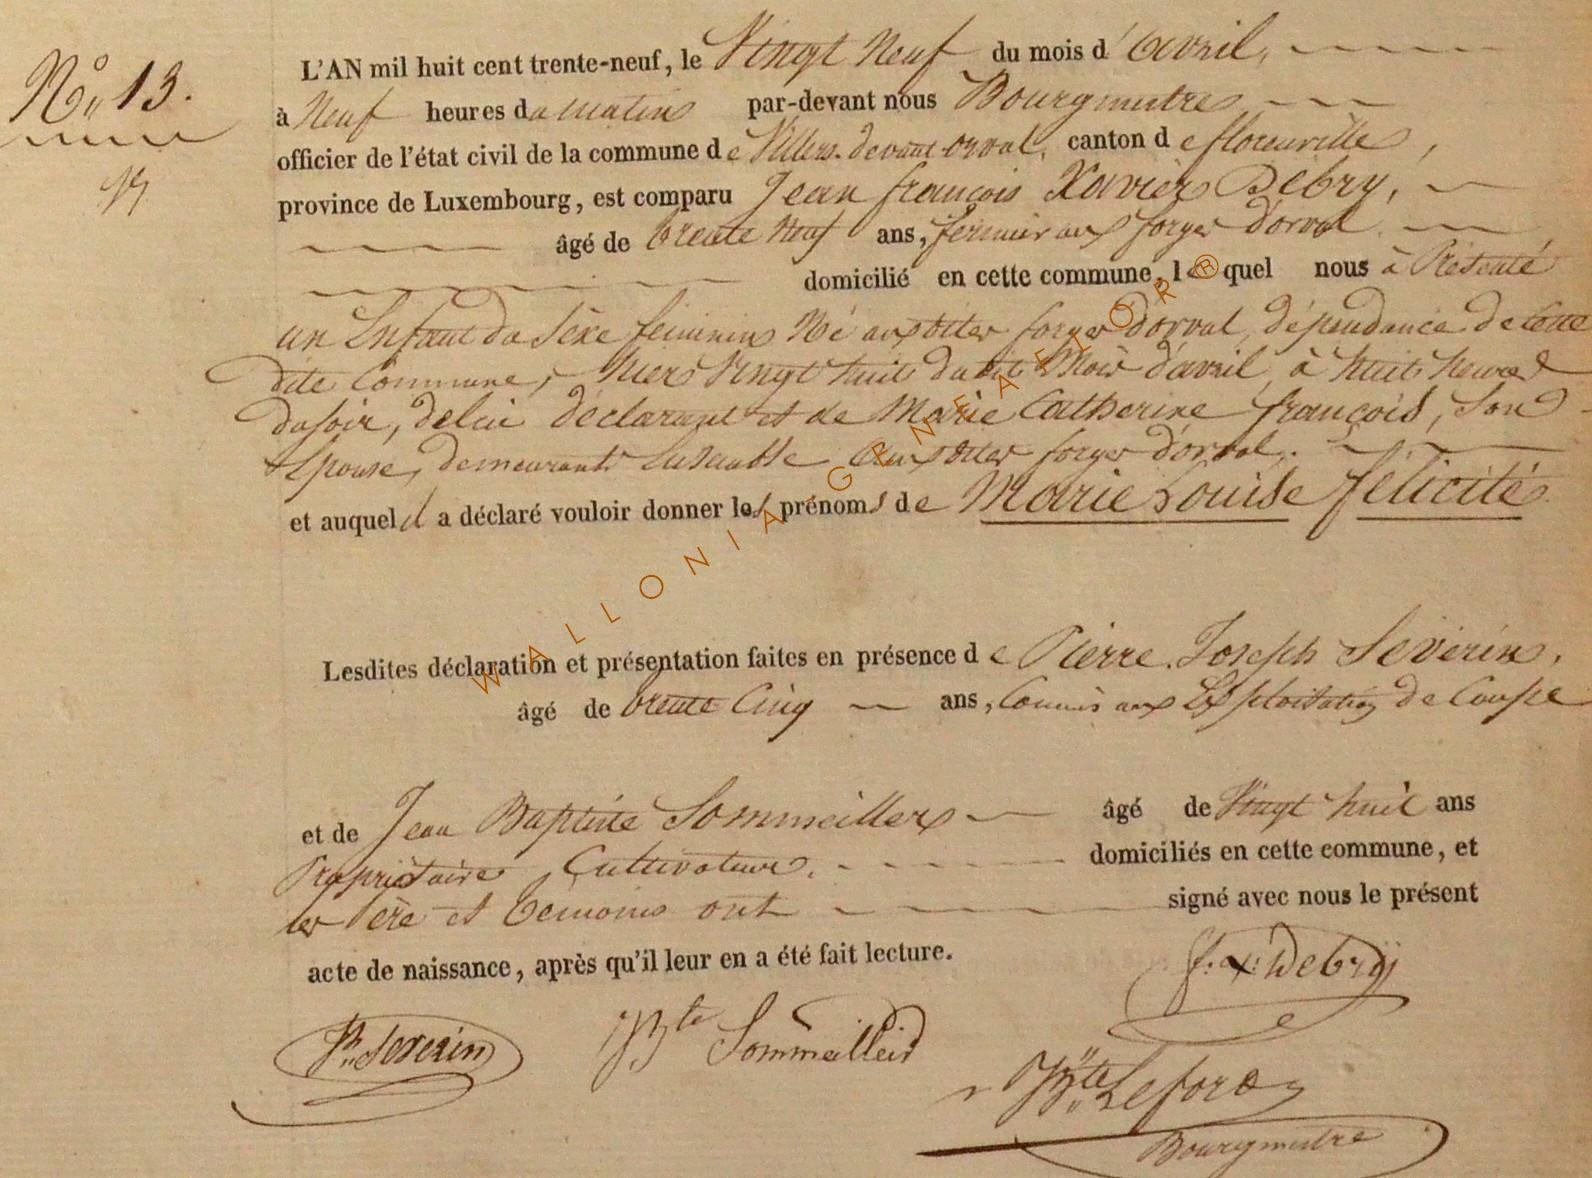 N° 13.
L'AN mil huit cent trente-neuf, le Vingt Neuf du mois d'avril,
à Neuf heures du matin par-devant nous Bourgmestre
officier de l'état civil de la commune de Villers-devant-orval, canton de florenville,
province de Luxembourg, est comparu Jean françois Xavier Debry,
âgé de trente Neuf ans, fermier aux forges d'orval
domicilié en cette commune, lequel nous à Présenté
un Enfant du Sèxe feminin Né auxdites forges d'orval, dépendance de cette
dite Commune, hier Vingt huit dudit Mois d'avril, à huit heures
dusoir, delui déclarant et de Marie Catherine françois, Son
Epouse, demeurant Ensemble auxdites forges d'orval.
et auquel il a déclaré vouloir donner les prénoms de Marie Louise félicité
Lesdites déclaration et présentation faites en présence de Pierre Joseph Sévérin,
âgé de trente Cinq ans, Commis aux Exploitation de Coupe
et de Jean Baptiste Sommeillier âgé de Vingt huit ans
Propriétaire Cultivateur. domiciliés en cette commune, et
les Père et témoins ont signé avec nous le présent
acte de naissance, après qu'il leur en a été fait lecture.
f: x: Debry
Severin
JBte Sommeillier
JBte
Bourgmestre
WALLONIA-GENEALOR®